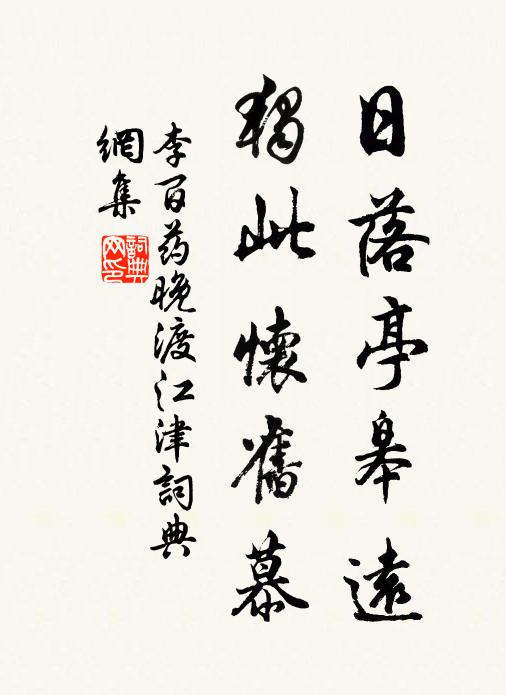 日落亭皋遠
獨此懷舊慕
李百药晚渡江津詞典
網集
詞典网印